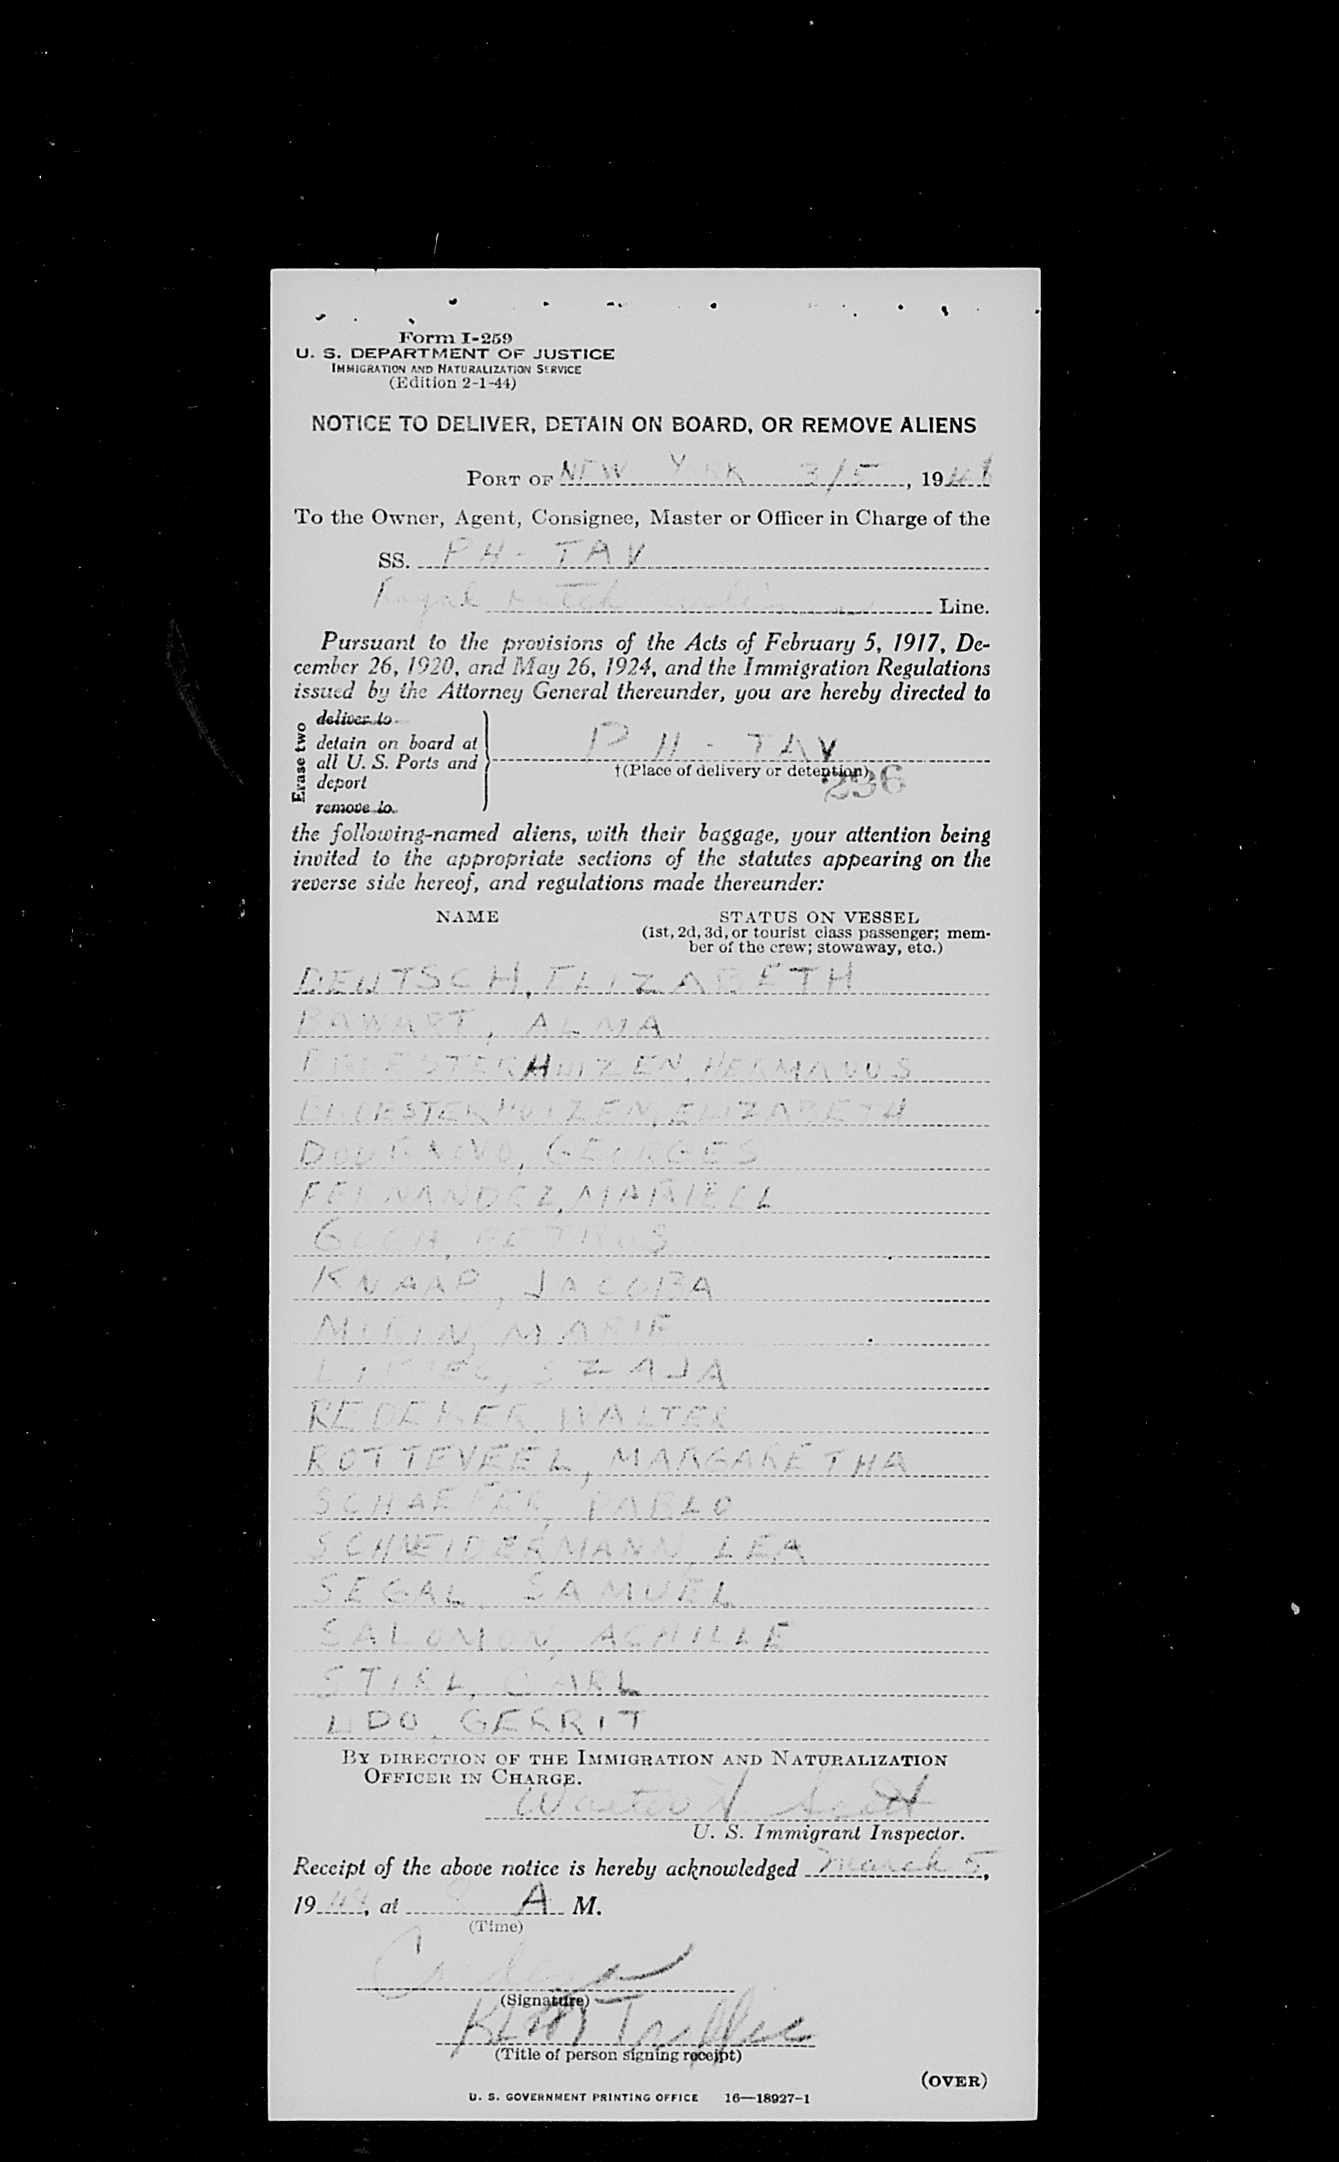 Form I-259
U. S. DEPARTMENT OF JUSTICE
IMMIGRATION AND NATURALIZATION SERVICE
(Edition 2-1-44)
NOTICE TO DELIVER, DETAIN ON BOARD, OR REMOVE ALIENS
PORT OF NEW YORK 3/5, 19
To the Owner, Agent, Consignee, Master or Officer in Charge of the
SS. PH-TAV
Royal Dutch Line.
Pursuant to the provisions of the Acts of February 5, 1917, De-
cember 26, 1920, and May 26, 1924, and the Immigration Regulations
issued by the Attorney General thereunder, you are hereby directed to
Erase two
deliver to
detain on board at
all U. S. Ports and
deport
remove to
PH-TAV
†(Place of delivery or detention)
236
the following-named aliens, with their baggage, your attention being
invited to the appropriate sections of the statutes appearing on the
reverse side hereof, and regulations made thereunder:
NAME STATUS ON VESSEL
(1st, 2d, 3d, or tourist class passenger; mem-
ber of the crew; stowaway, etc.)
DEUTSCH, ELIZABETH
BAWART, ALMA
HERMANUS
ELIZABETH
GEORGES
FERNANDEZ,
PETRUS
KNAAP, JACOBA
MARIE
SZAJA
REDEKER, WALTER
ROTTEVEEL, MARGARETHA
SCHAEFER, PABLO
SCHNEIDERMANN, LEA
SEGAL, SAMUEL
SALOMON, ACHILLE
CARL
UDO, GERRIT
BY DIRECTION OF THE IMMIGRATION AND NATURALIZATION
OFFICER IN CHARGE.
Walter Scott
U. S. Immigrant Inspector.
Receipt of the above notice is hereby acknowledged March 5,
19, at A M.
(Time)
(Signature)
KLM Traffic
(Title of person signing receipt)
(OVER)
U. S. GOVERNMENT PRINTING OFFICE 16—18927-1